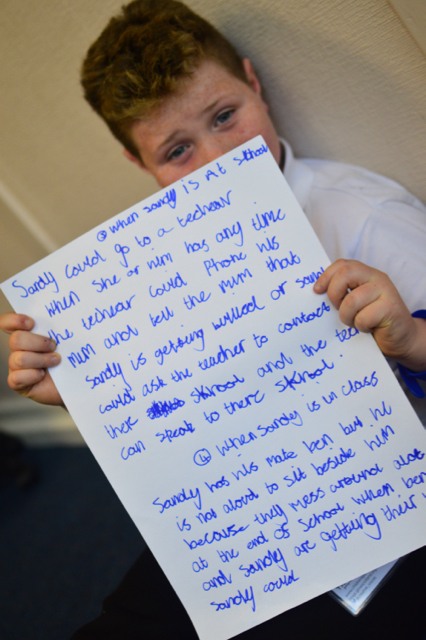 ③ When Sandy is At skhool
Sandy could go to a techear
when she or him has any time
the techear could Phone his
mum and tell the mum that
Sandy is getting bullied or sandy
could ask the teacher to contact
their skhool and the
can speak to there skhool.
④ when Sandy is in class
Sandy has his mate ben but he
is not aloud to sit beside him
because they mess around alot
at the end of school when ben
and Sandy are getting their
Sandy could